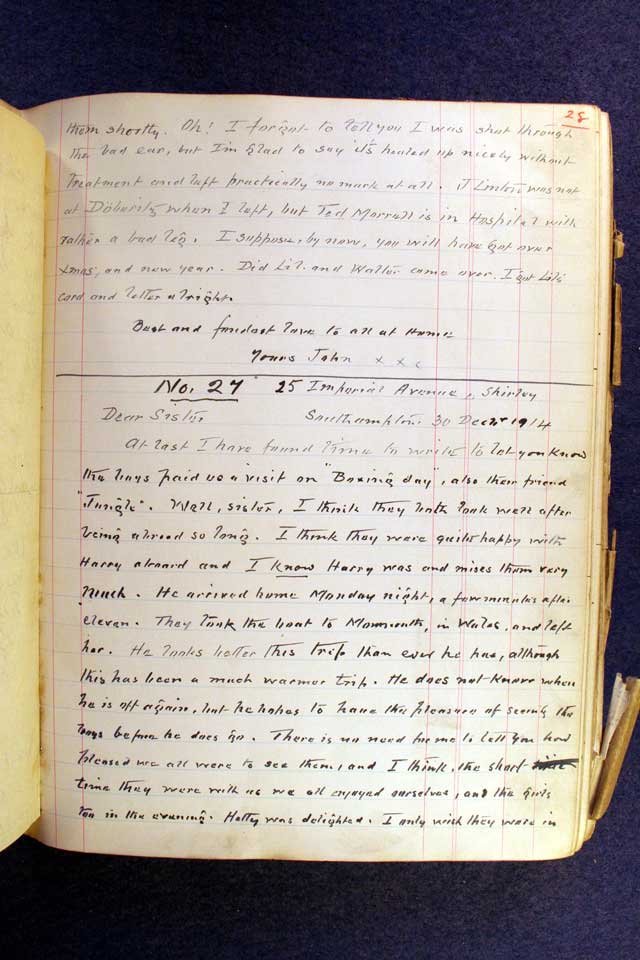 28
them shortly. Oh! I forgot to tell you I was shot through
the bad ear, but I'm glad to say its healed up nicely without
treatment and left practically no mark at all. J Linton was not
at Döberitz when I left, but Ted Morrall is in Hospital with
rather a bad leg. I suppose, by now, you will have got over
xmas, and new year. Did Lil. and Walter come over. I got Lil's
card and letter alright.
Best and fondest love to all at Home
Yours John x x x
No. 27 25 Imperial Avenue, Shirley
Dear Sister, Southampton. 30 Decr 1914
At last I have found time to write to let you know
the boys paid us a visit on "Boxing day", also their friend
"Jungle". Well, sister, I think they both look well after
being abroad so long. I think they were quite happy with
Harry aboard and I know Harry was and mises them very
much. He arrived home Monday night, a few minutes after
eleven. They took the boat to Monmouth, in Wales, and left
her. He looks better this trip than ever he has, although
this has been a much warmer trip. He does not know when
he is off again, but he hopes to have the pleasure of seeing the
boys before he does go. There is no need for me to tell you how
pleased we all were to see them, and I think, the short
time they were with us we all enjoyed ourselves, and the girls
too in the evening. Hetty was delighted. I only wish they were in